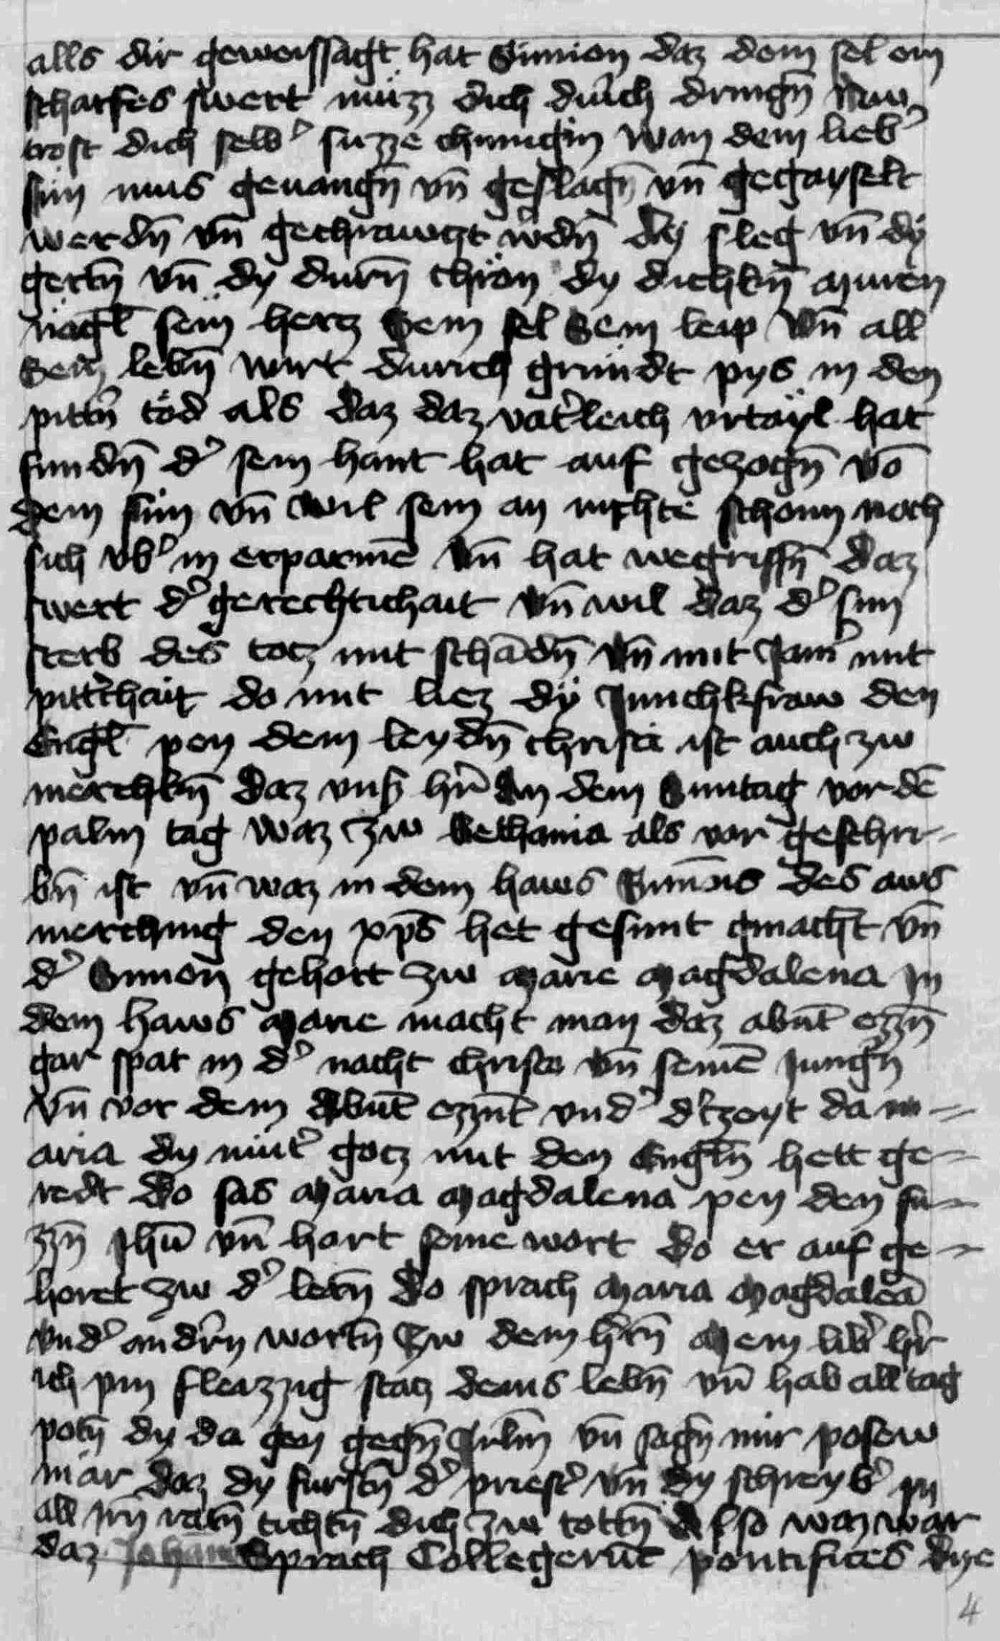 alls dir geweissagt hat Simion daz dein sel ein
scharfes swert müzz dich durich dringn̄ Naw
trost dich selb̾ suzze chunigin wan dein lieb̾
sun mus geuangn̄ vn̄ geslagn̄ vn̄ gegayselt
werdn̄ vn̄ gechrawgt w̾dn̄ dy sleg vn̄ dy
gertn̄ vn̄ dy durn̄ chron dy dichkn̄ eyniren
nagl̄ sein hercz Sein sel Sein leip vn̄ all
Sein lebn̄ wirt durich gründt pys in den
pittn̄ tod als daz daz vat̾leich vrtayl hat
fundn̄ d̾ sein hant hat auf gezogn̄ vō
dem sun vn̄ wil sein an nichte schonn noch
sich vb̾ in erparmē vn̄ hat wegriffn̄ daz
swert d̾ gerechtichait vn̄ wil daz d̾ sun
sterb des totz mit schādn̄ vn̄ mit Jam̾ mit
pitt̾chait do mit liez dy Junchkfraw den
Engl̄ pey dem leydn̄ christi ist auch zw
merchkn̄ daz vns̾ hr̄ an dem Suntag vor dē
palm tag waz zw Bethania als vor geschri-
bn̄ ist vn̄ waz in dem haws Simōis des aws
merching den xp̄s het gesunt gmacht vn̄
d̾ Simon gehort zw Marie Magdalena In
dem haws Marie macht man daz abnt̄ ezzn̄
gar spat in d̾ nacht christo vn̄ seinē Jungn̄
vn̄ vor dem Abnt̄ ezznt̄ vnd̾ d̾ zeyt da m=
aria dy mut̾ gotz mit den Engln̄ hett ge=
redt do sas Maria Magdalena pey den fu=
zzn̄ Jhū vn̄ hort seine wort do er auf ge=
horet zw d̾ lern̄ do sprach Maria Magdaleā
vnd̾ andr̾n wortn̄ zw dem hr̄n Mein lib̾ hr̄
ich pin fleizzig stacz deins lebn̄ vn̄ hab all tag
potn̄ dy da gen gegn̄ Jrlm̄ vn̄ sagn̄ mir posew
mär daz dy fursn̄ d̾ priest̾ vn̄ dy schreyb̾ in
all irn̄ rätn̄ tichtn̄ dich zw tottn̄ Also waz war
daz Johānes Sprach Collegerūt pontifices dye
4